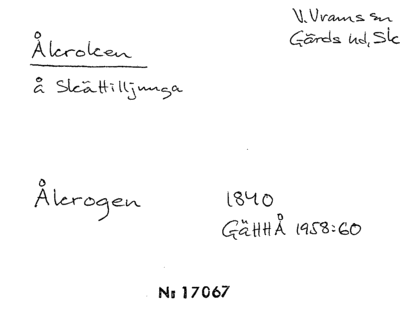 V. Vrams sn
Gärds hd, Sk
Åkroken
å Skättilljunga
Åkrogen 1840
GäHHÅ 1958:60
Nr 17067